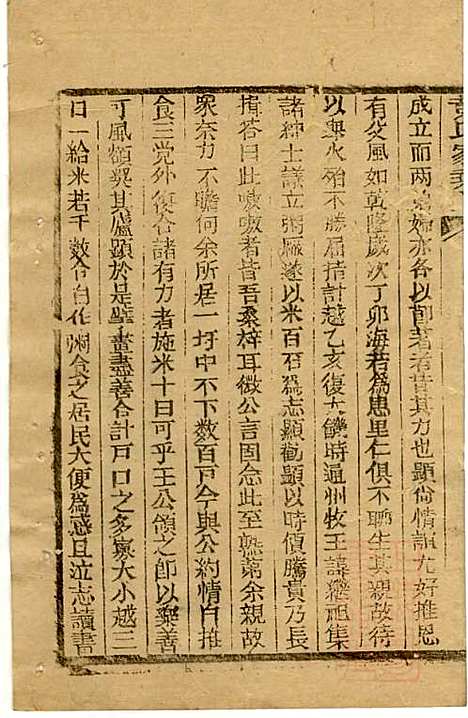 成立而兩弟婦亦各以節著者皆其力也顯倫情誼尤好推恩
有父風如乾隆歲次丁卯海若為患里仁俱不聊生其親故待
以舉火殆不勝屈指計越乙亥復大饑時通州牧王諱繼祖集
諸紳士議立粥廠遂以米百石為志顯勸顯以時價騰貴乃長
揖答曰此嗷嗷者皆吾桑梓耳微公言固念此至熟第余親故
眾余力不贍何余所居一圩中不下數百戶今與公約情自推
食三党外復合諸有力者施米十日可乎王公頷之即以襃善
可風額奬其廬顯於是壁畫盡善合計戶口之多寡大小越三
日一給米若干數令自作粥食之居民大便為感且泣志讀書